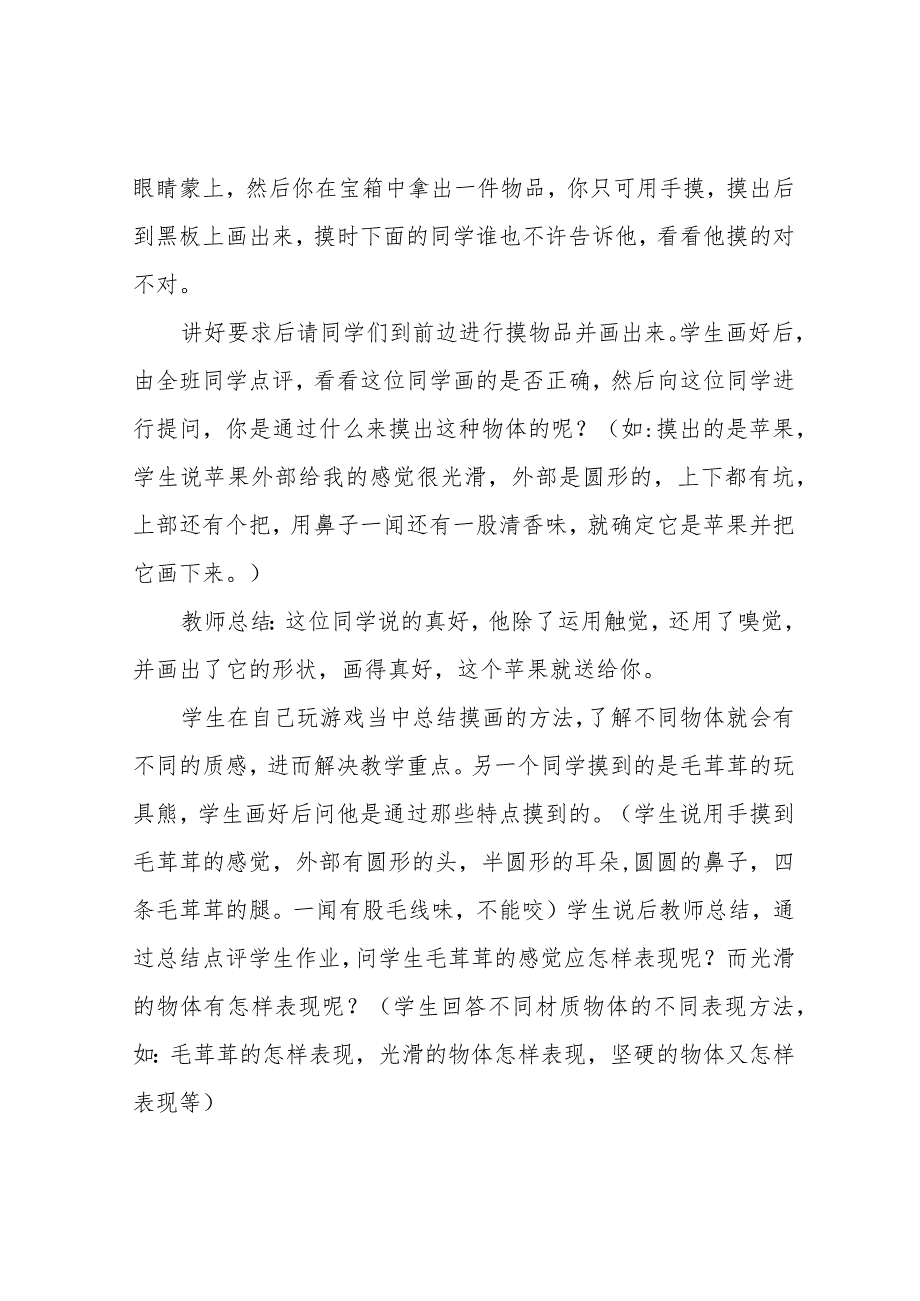 眼睛蒙上，然后你在宝箱中拿出一件物品，你只可用手摸，摸出后
到黑板上画出来，摸时下面的同学谁也不许告诉他，看看他摸的对
不对。
讲好要求后请同学们到前边进行摸物品并画出来。学生画好后，
由全班同学点评，看看这位同学画的是否正确，然后向这位同学进
行提问，你是通过什么来摸出这种物体的呢？（如:摸出的是苹果，
学生说苹果外部给我的感觉很光滑，外部是圆形的，上下都有坑，
上部还有个把，用鼻子一闻还有一股清香味，就确定它是苹果并把
它画下来。）
教师总结：这位同学说的真好，他除了运用触觉，还用了嗅觉，
并画出了它的形状，画得真好，这个苹果就送给你。
学生在自己玩游戏当中总结摸画的方法，了解不同物体就会有
不同的质感，进而解决教学重点。另一个同学摸到的是毛茸茸的玩
具熊，学生画好后问他是通过那些特点摸到的。（学生说用手摸到
毛茸茸的感觉，外部有圆形的头，半圆形的耳朵,圆圆的鼻子，四
条毛茸茸的腿。一闻有股毛线味，不能咬）学生说后教师总结，通
过总结点评学生作业，问学生毛茸茸的感觉应怎样表现呢？而光滑
的物体有怎样表现呢？（学生回答不同材质物体的不同表现方法，
如：毛茸茸的怎样表现，光滑的物体怎样表现，坚硬的物体又怎样
表现等）